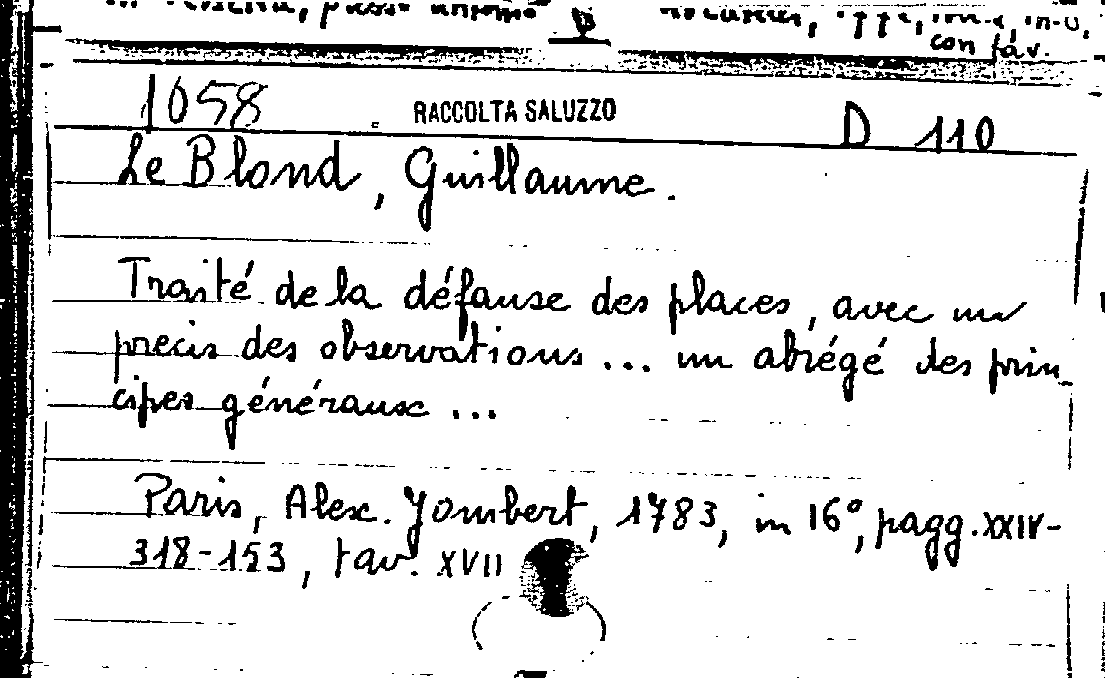 con tav.
1058 RACCOLTA SALUZZO D 110
Le Blond, Guillaume.
Traité de la défause des places, avec un
precis des observations... un abrégé des prin_
cipes généraux...
Paris, Alex. Jombert, 1783, in 16°, pagg. XXIV-
318-153, tav. XVII